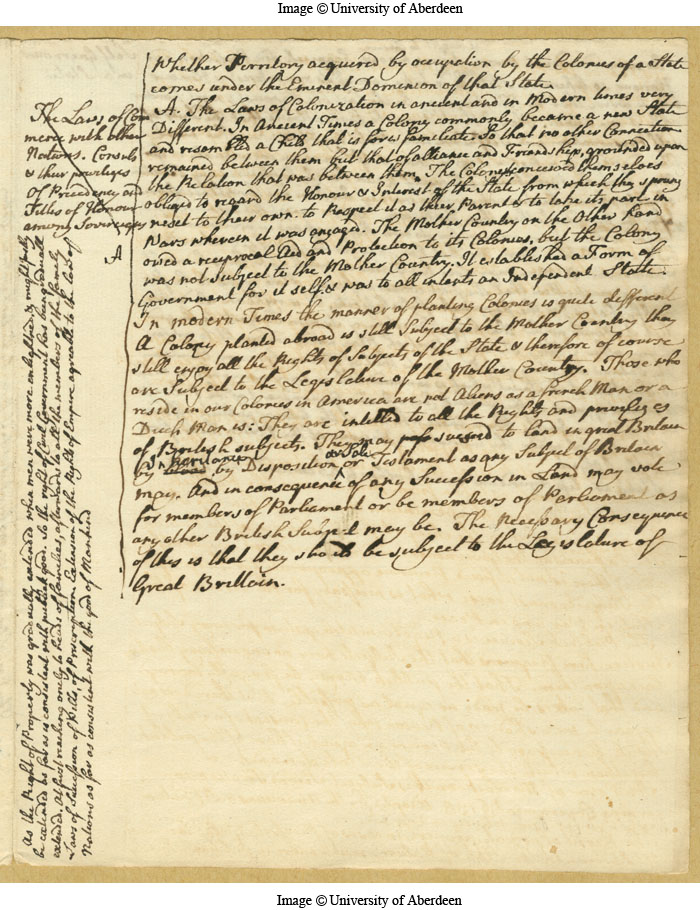 Image © University of Aberdeen
Whether Territory acquired by occupation by the Colonies of a State
comes under the Eminent Dominion of that State.
A. The Laws of Colonization in ancient and in Modern times very
Different. In Ancient Times a Colony commonly became a new State
and resembled a Child that is foris familiate. So that no other Connection
remained between them but that of alliance and Friendship, grounded upon
the Relation that was between them. The Colony conceived themselves
obliged to regard the Honour & Interest of the State from which they sprung
next to their own. to Respect it as their Parent & to take its part in
Wars wherein it was engaged. The Mother Country on the Other hand
owed a reciprocal Aid and Protection to its Colonies, but the Colony
was not subject to the Mother Country. It established a Form of
Government for it self, & was to all intents an Independent State.
In modern Times the manner of planting Colonies is quite different
A Colony planted abroad is still Subject to the Mother Country they
still enjoy all the Rights of Subjects of the State & therefore of course
are Subject to the Legislature of the Mother Country. Those who
reside in our Colonies in America are not Aliens as a french Man or a
Dutch Man is: They are intitled to all the Rights and privileges
of British subjects. They may succeed to land in great Britain
by Inheritance by Disposition or Sale or Testament as any Subject of Britain
may. And in consequence of any Succession in Land may vote
for members of Parliament or be members of Parliament as
any other British Subject may be. The Necessary Consequence
of this is that they should be subject to the Legislature of
Great Brittain.
The Laws of Com
merce with other
Nations. Consuls
& their priviledges
Of Precedency and
Titles of Honour
among Sovereigns
A
As the Right of Property was gradually extended when men were more enlightened, & might justly
be extended as far as is consistent with publick good. So the right of Civil Government has been gradually
extended. At first reaching onely to heads of families, afterwards to all the members of the family
Laws of Succession of Wills, of Prescription. Extension of the Right of Empire agreable to the Law of
Nations as far as consistent with the good of Mankind
Image © University of Aberdeen